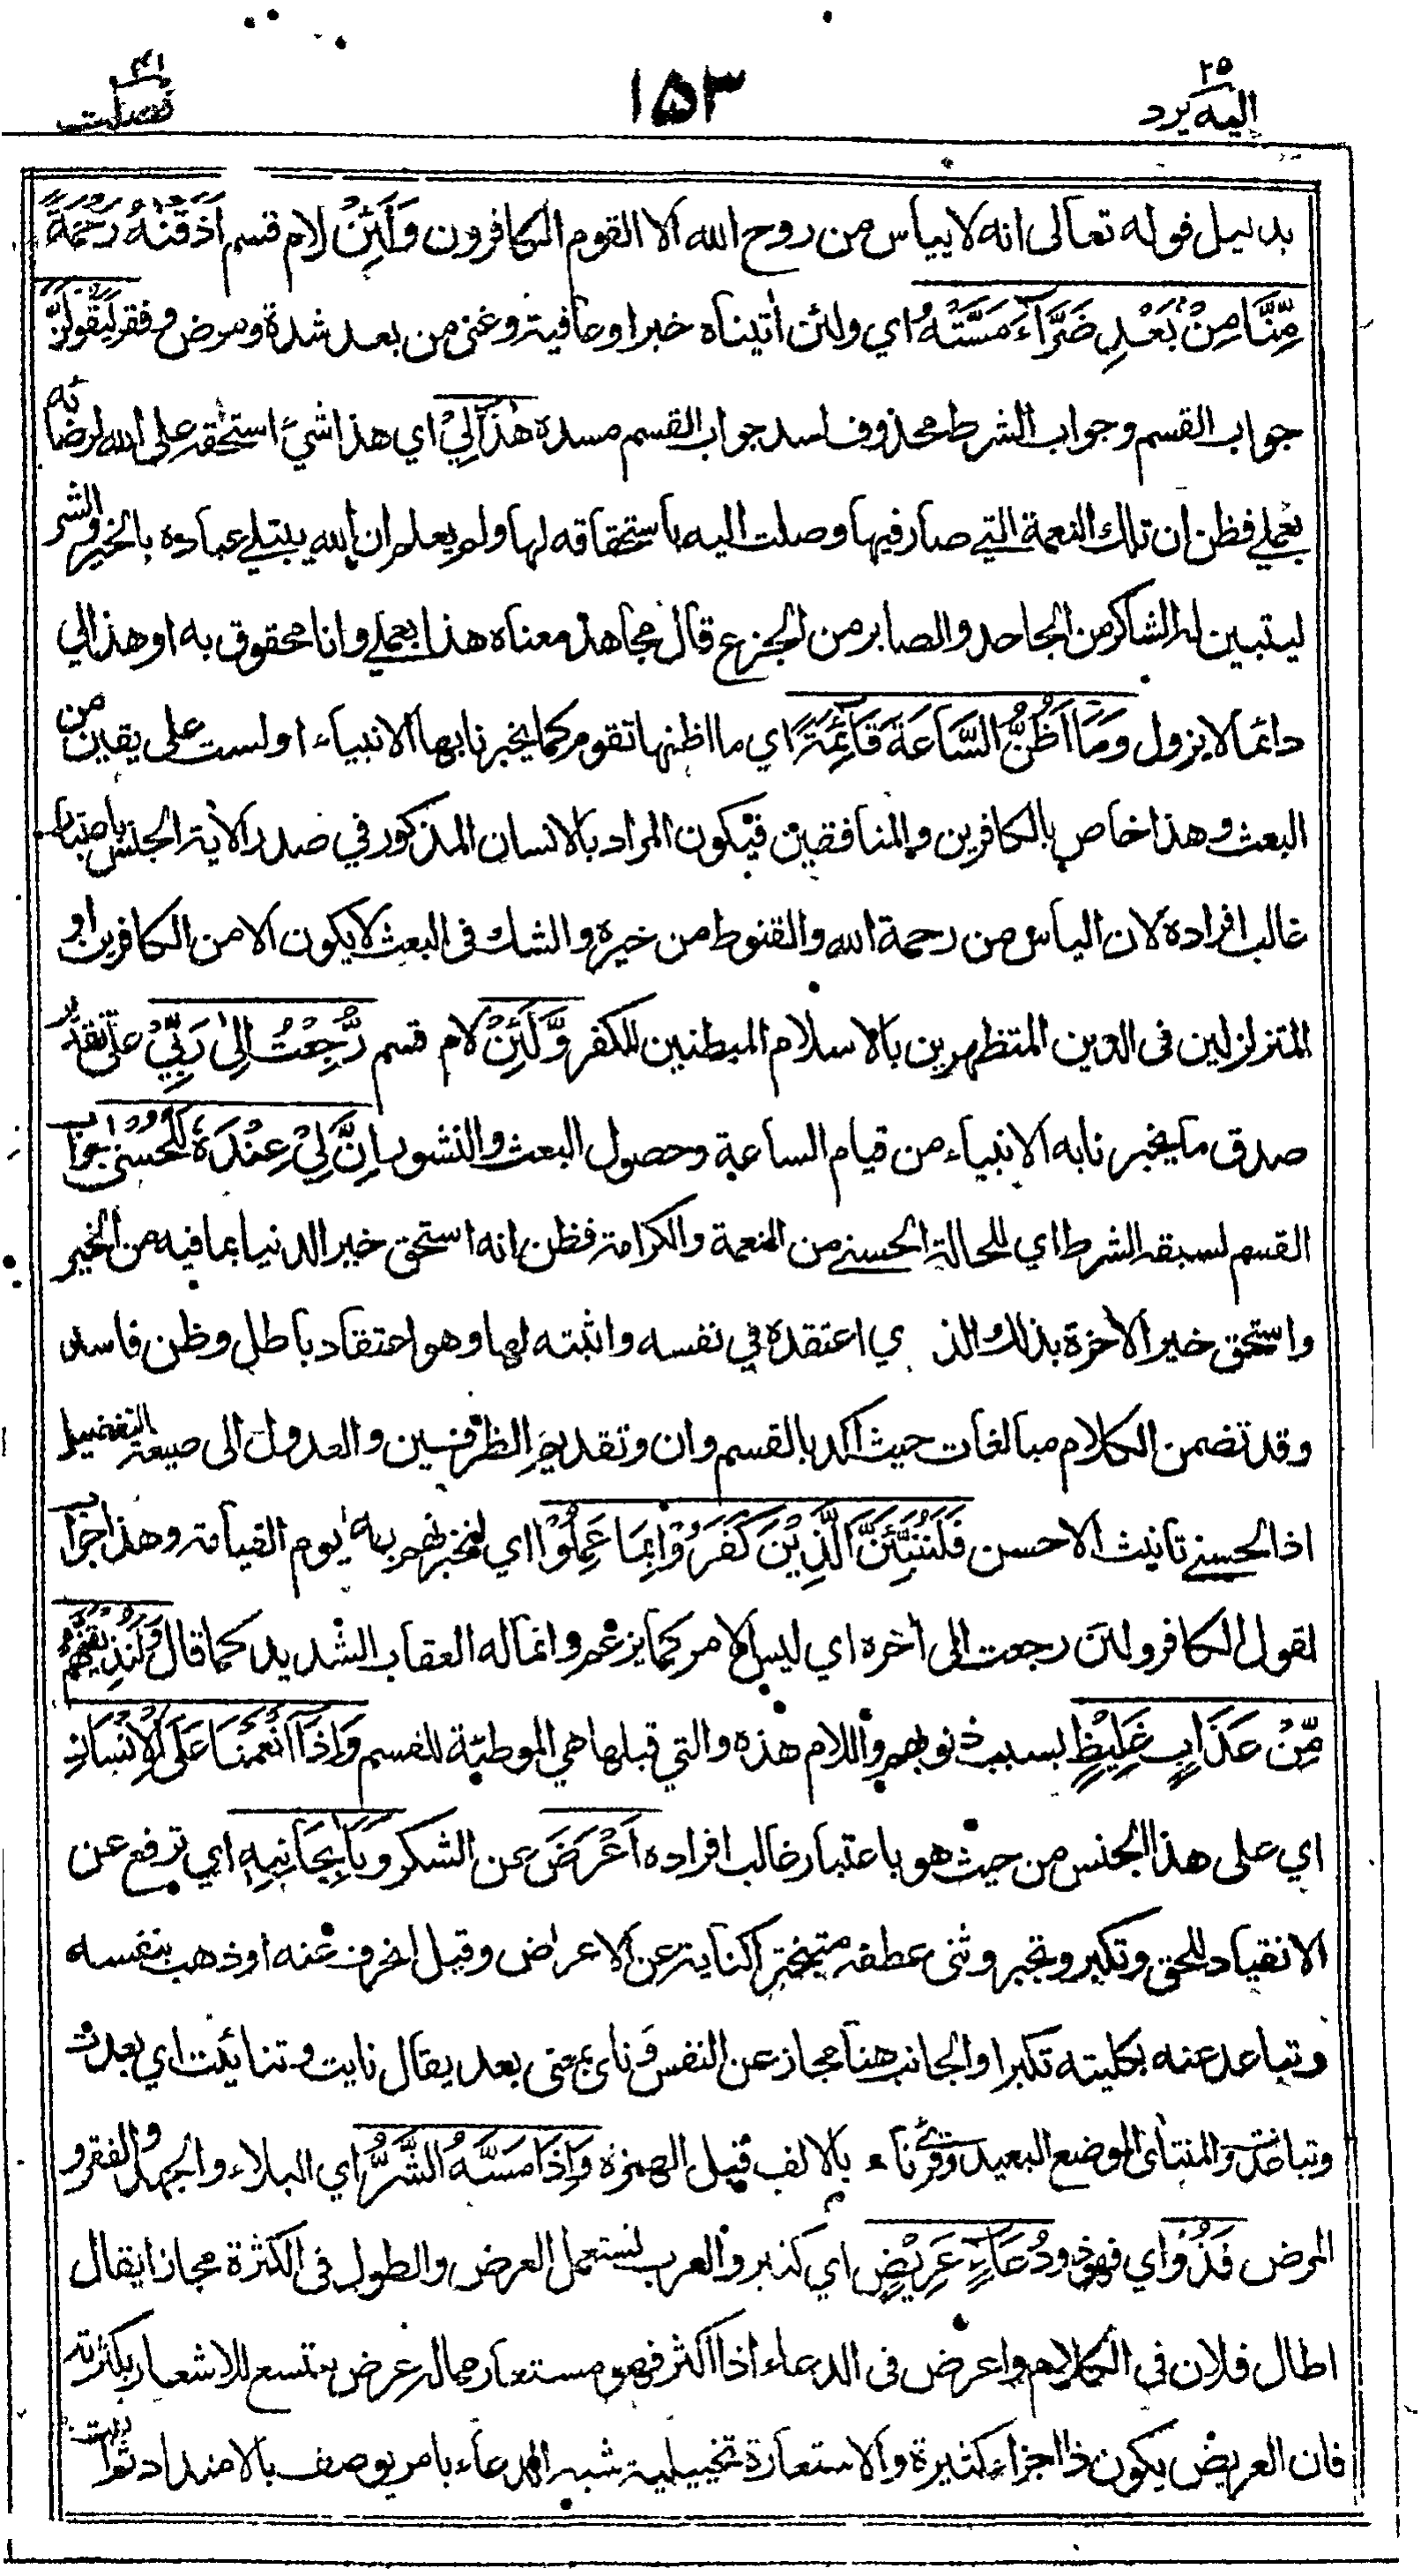 ٢٥
اليه يرد
١٥٣
٤١
فصلت
بدليل قوله تعالى انه لا يياس من روح الله الا القوم الكافرون وَلَئِنْ لام قسم اَذَقْنٰهُ رَحْمَةً
مِّنَّا مِنْۢ بَعْدِ ضَرَّآءَ مَسَّتْهُ اي ولئن اٰتيناه خيرا وعافية وغنى من بعد شدة ومرض وفقر لَيَقُوْلَنَّ
جواب القسم وجواب الشرط محذوف لسد جواب القسم مسده هٰذَا لِيْ اي هذا شيئ استحقه على الله لرضائه
بعملي فظن ان تلك النعمة التي صار فيها وصلت اليه باستحقاقه لها ولم يعلم ان الله يبتلي عباده بالخير والشر
ليتبين له الشاكر من الجاحد والصابر من الجزع قال مجاهد معناه هذا بعملي وانا محقوق به او هذا لي
دائما لا يزول وَمَآ اَظُنُّ السَّاعَةَ قَآئِمَةً اي ما اظنها تقوم كما يخبرنا بها الانبياء او لست على يقين من
البعث وهذا خاص بالكافرين والمنافقين فيكون المراد بالانسان المذكور في صدر الاية الجنس باعتبار
غالب افراده لان الياس من رحمة الله والقنوط من خيره والشك في البعث لا يكون الا من الكافرين او
المتزلزلين في الدين المتظهرين بالاسلام المبطنين للكفر وَّلَئِنْ لام قسم رُّجِعْتُ اِلٰى رَبِّيْ على تقدير
صدق ما يخبرنا به الانبياء من قيام الساعة وحصول البعث والنشور اِنَّ لِيْ عِنْدَهٗ لَلْحُسْنٰى جواب
القسم لسبقه الشرط اي للحالة الحسنى من النعمة والكرامة فظن انه استحق خير الدنيا بما فيه من الخير
واستحق خير الاخرة بذلك الذي اعتقده في نفسه واثبته لها وهو اعتقاد باطل وظن فاسد
وقد تضمن الكلام مبالغات حيث اكد بالقسم وان وتقديم الظرفين والعدول الى صيغة التفضيل
اذ الحسنى تانيث الاحسن فَلَنُنَبِّئَنَّ الَّذِيْنَ كَفَرُوْا بِمَا عَمِلُوْا اي لنخبرنهم بها يوم القيامة وهذا جواب
لقول الكافر ولئن رجعت الى آخره اي ليس الامر كما يزعم وانما له العقاب الشديد كما قال وَلَنُذِيْقَنَّهُمْ
مِّنْ عَذَابٍ غَلِيْظٍ بسبب ذنوبهم واللام هذه والتي قبلها هي الموطئة للقسم وَاِذَآ اَنْعَمْنَا عَلَى الْاِنْسَانِ
اي على هذا الجنس من حيث هو باعتبار غالب افراده اَعْرَضَ عن الشكر وَنَاٰ بِجَانِبِهٖ اي ترفع عن
الانقياد للحق وتكبر وتجبر وثنى عطفه متبخترا كناية عن الاعراض وقيل انحرف عنه او ذهب بنفسه
وتباعد عنه بكليته تكبرا والجانب هنا مجاز عن النفس وَناى بمعنى بعد يقال نايت وتنائيت اي بعدت
وتباعدت والمنتأى الموضع البعيد وقرئ ناء بالالف قبل الهمزة وَاِذَا مَسَّهُ الشَّرُّ اي البلاء والجهد والفقر و
المرض فَذُوْ اي فهو ذو دُعَآءٍ عَرِيْضٍ اي كثير والعرب تستعمل العرض والطول في الكثرة مجازا يقال
اطال فلان في الكلام واعرض في الدعاء اذا اكثر فهو مستعار مما له عرض متسع للاشعار بكثرته
فان العريض يكون ذا اجزاء كثيرة والاستعارة تخييلية شبه الدعاء بامر يوصف بالامتداد ثم اثبت